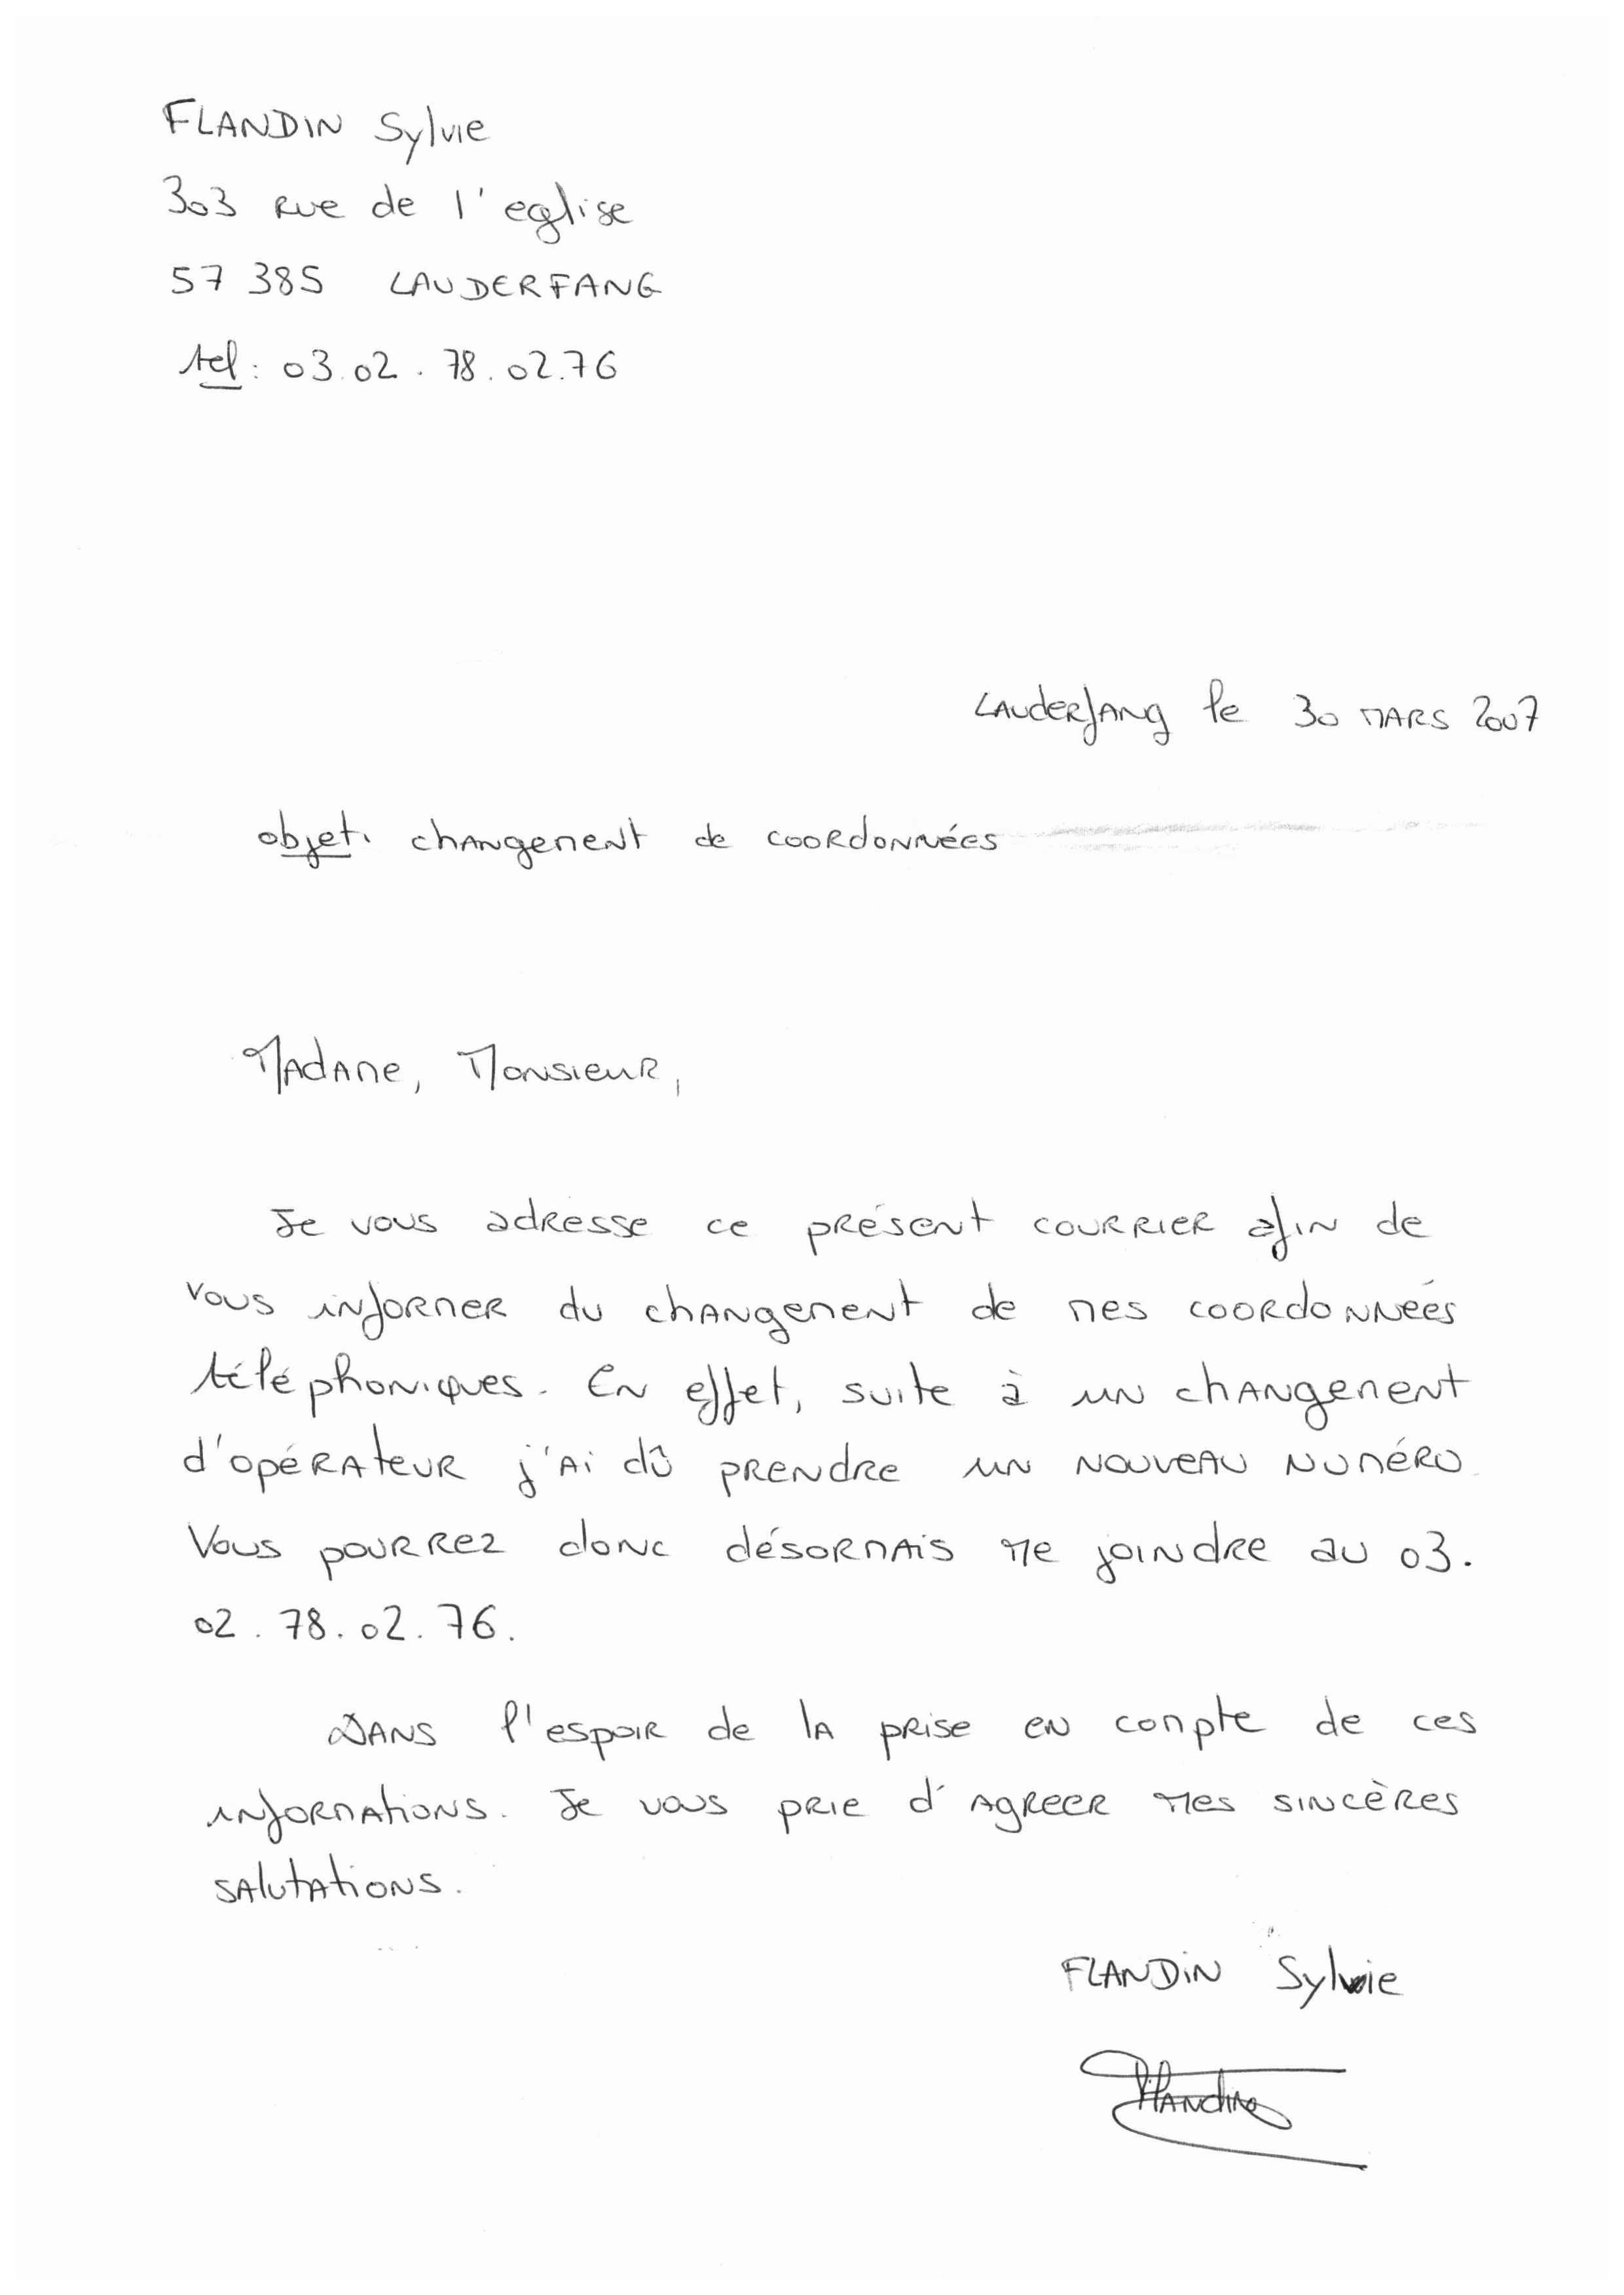 FLANDIN Sylvie
303 rue de l'eglise
57 385 LAUDERFANG
tel : 03.02.78.02.76
Lauderfang le 30 MARS 2007
objet. changement de coordonnées
Madame, Monsieur,
Je vous adresse ce présent courrier afin de
vous informer du changement de mes coordonnées
téléphoniques. En effet, suite à un changement
d'opérateur j'ai dû prendre un nouveau numéro.
Vous pourrez donc désormais me joindre au 03.
02.78.02.76.
Dans l'espoir de la prise en compte de ces
informations. Je vous prie d'agreer mes sincères
salutations.
FLANDIN Sylvie
Flandin